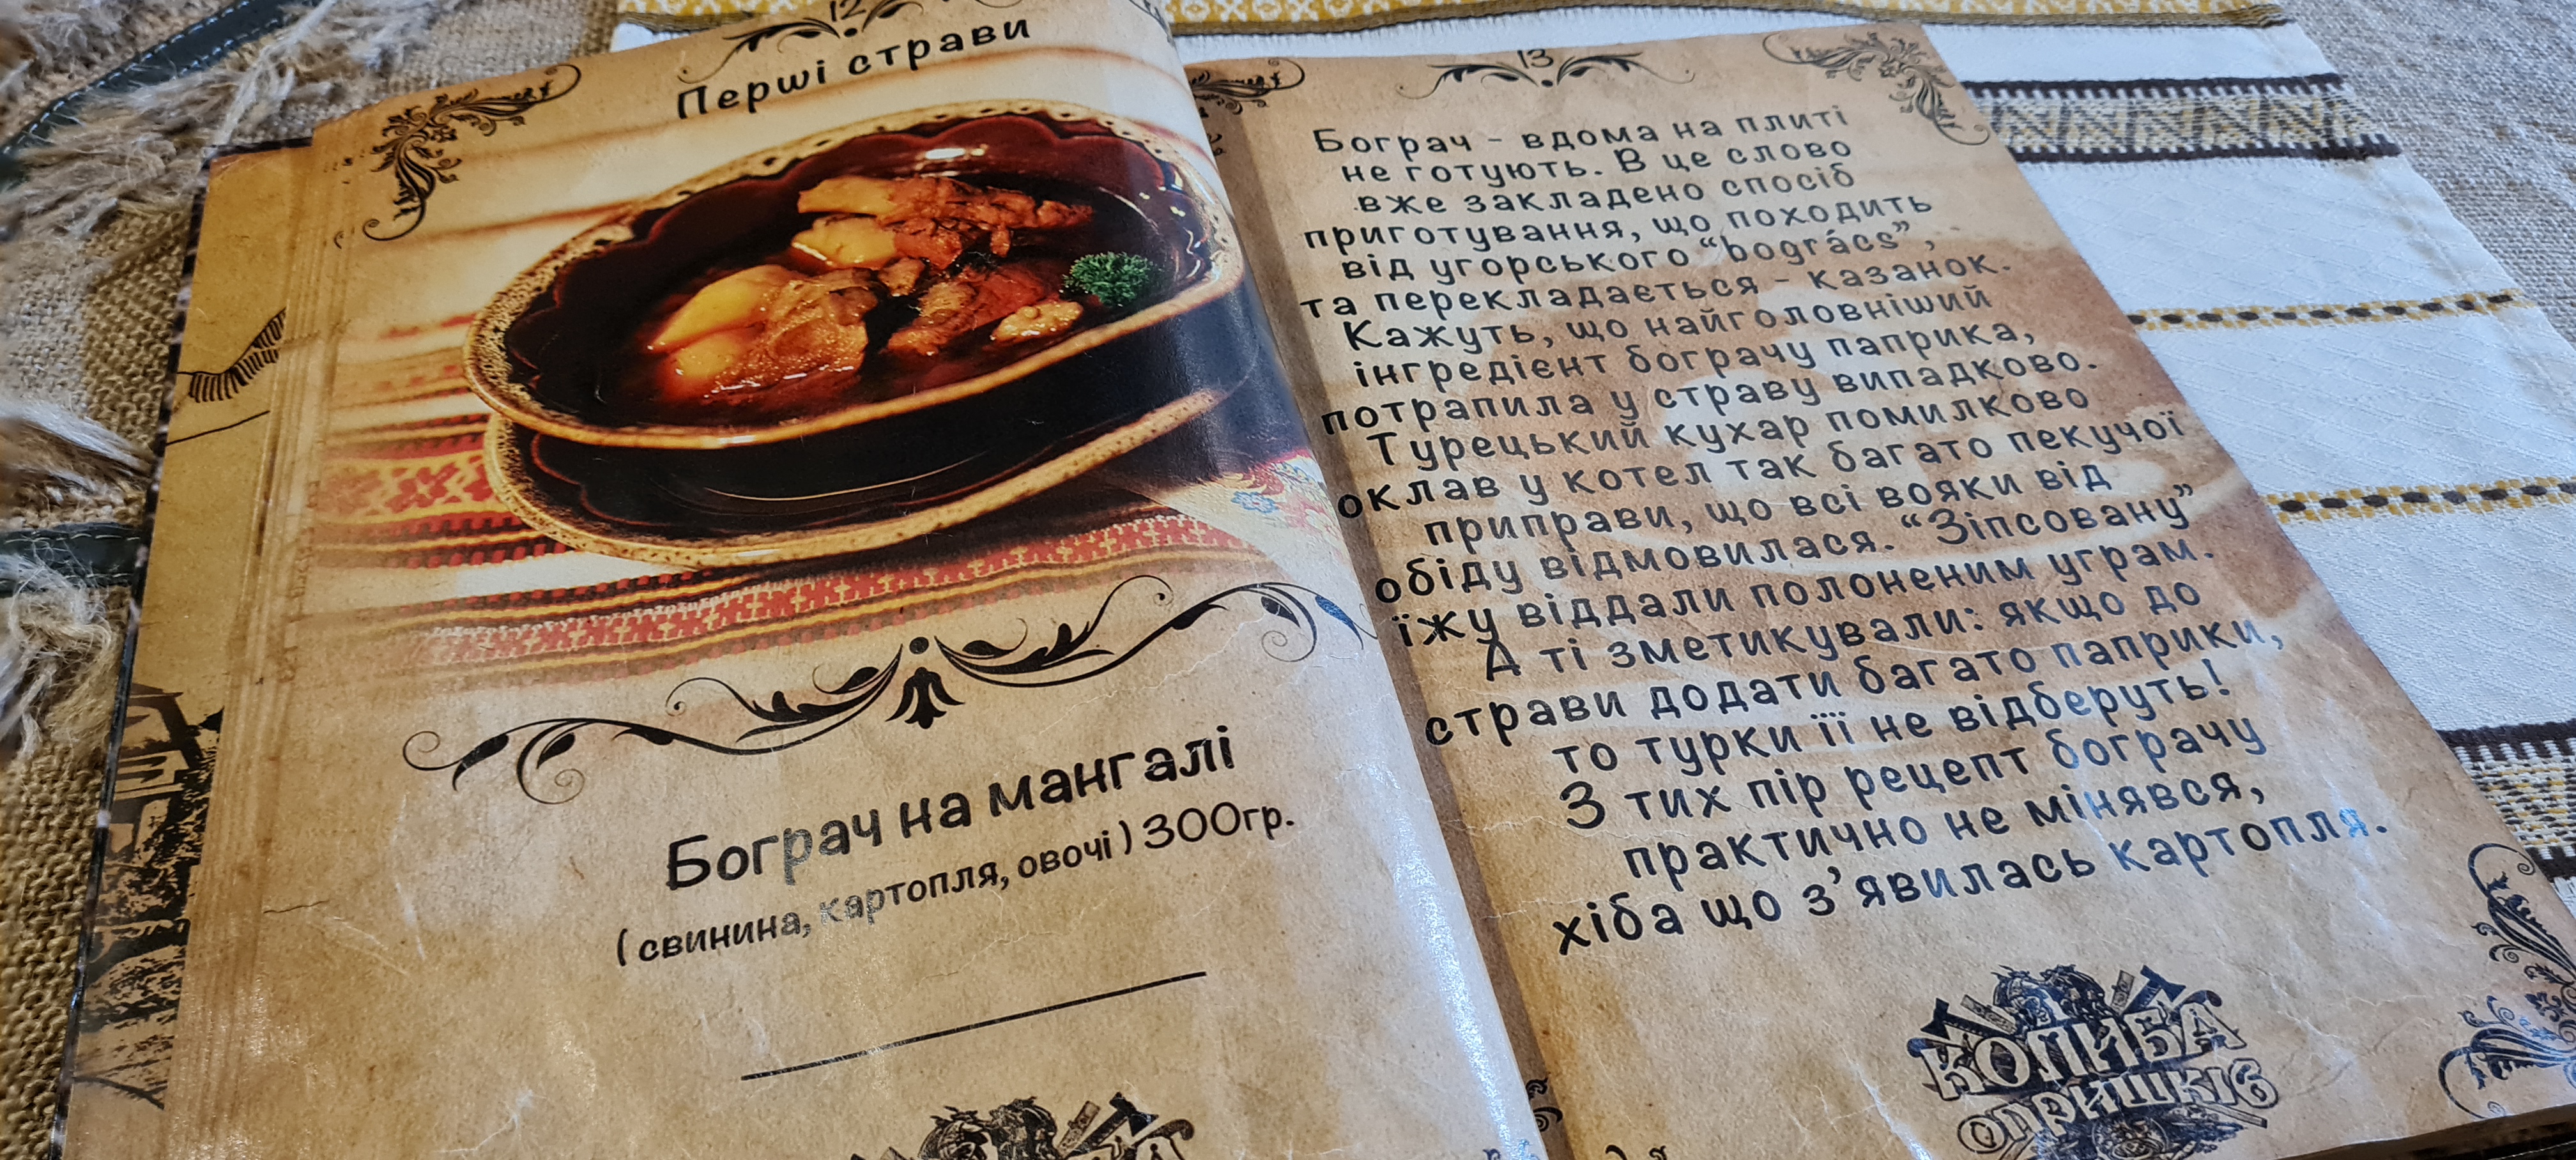 12
Перші страви
Бограч на мангалі
( свинина, картопля, овочі ) 300гр.
13
Бограч - вдома на плиті
не готують. В це слово
вже закладено спосіб
приготування, що походить
від угорського “bogrács”,
та перекладається - казанок.
Кажуть, що найголовніший
інгредієнт бограчу паприка,
потрапила у страву випадково.
Турецький кухар помилково
оклав у котел так багато пекучої
приправи, що всі вояки від
обіду відмовилася. “Зіпсовану”
їжу віддали полоненим уграм.
А ті зметикували: якщо до
страви додати багато паприки,
то турки її не відберуть!
З тих пір рецепт бограчу
практично не мінявся,
хіба що з’явилась картопля.
КОЛИБА
опришків